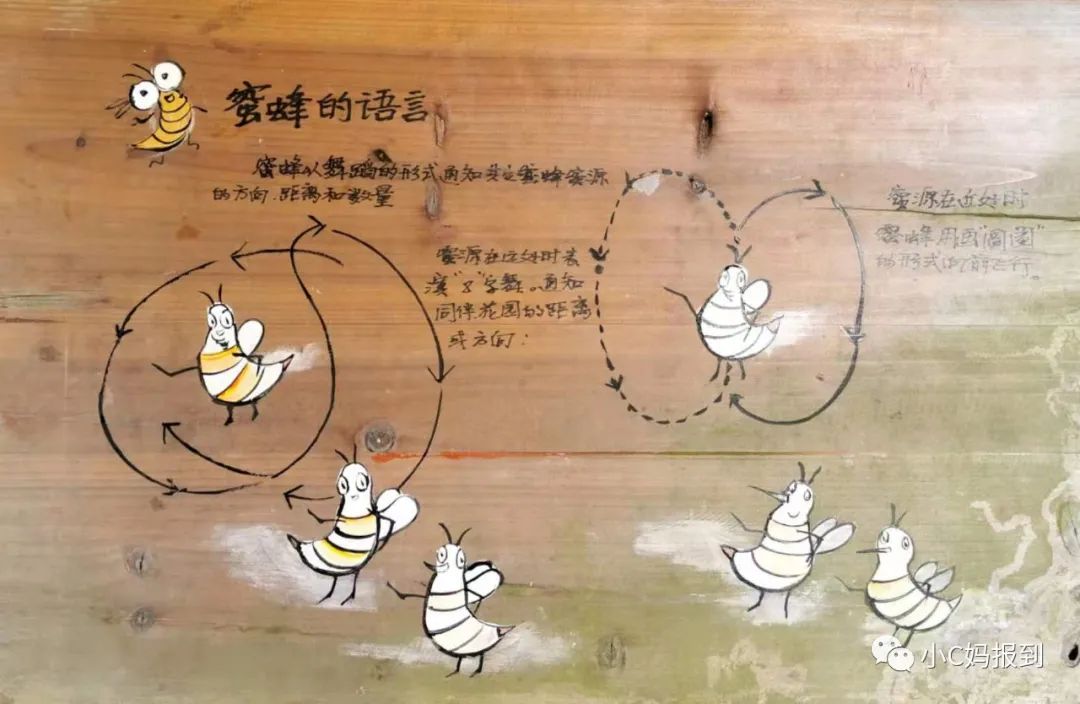 蜜蜂的语言
蜜蜂以舞蹈的形式通知其它蜜蜂蜜源
的方向.距离和数量
蜜源在远处时表
演“8”字舞。通知
同伴花园的距离
或方向:
蜜源在近处时
蜜蜂用画“圆圈”
的形式向前飞行。
小C妈报到